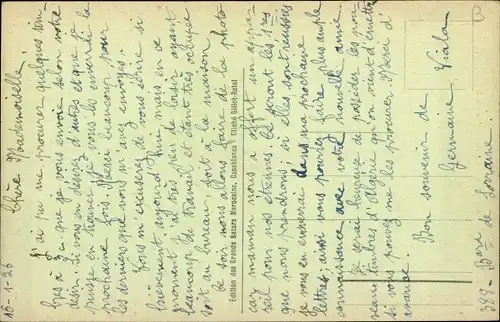 16-1-26
Chère Mademoiselle,
J'ai pu me procurer quelques tim-
bres à que je vous envoie selon votre
désir. Si vous en désirez d'autres et que je
puisse en trouver je vous les enverrai la
prochaine fois. Merci beaucoup pour
les derniers que vous m'avez envoyés.
Vous m'excuserez de vous écrire si
brièvement aujourd'hui mais en ce
moment j'ai très peu de loisir ayant
beaucoup de travail et étant très occupée
soit au bureau, soit à la maison.
Ce soir nous allons faire de la photo
Edition des Grands Bazars Marocains, Casablanca - Cliché Gillot-Ratel
car maman nous a offert un appa-
reil pour nos étrennes. Ce seront les 1res
que nous rendrons; si elles sont réussies
je vous en enverrai dans ma prochaine
lettre; ainsi vous pourrez faire plus ample
connaissance avec votre nouvelle amie.
Je serai heureuse de posséder les nou-
veaux timbres d'Algérie qu'on vient d'émettre
si vous pouvez me les procurer. Merci d'
avance.
Bon souvenir de
Germaine Viala
389 - Bard de Lorraine